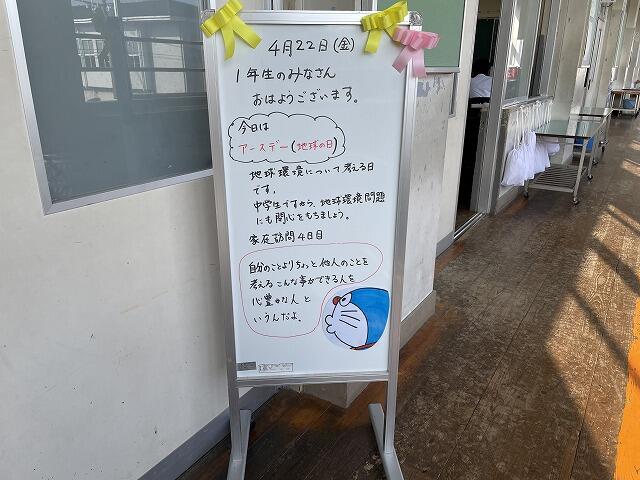 4月22日(金)
1年生のみなさん
おはようございます。
今日は
アースデー(地球の日)
地球環境について考える日
です。
中学生ですから、地球環境問題
にも関心をもちましょう。
家庭訪問4日目
自分のことよりちょっと他人のことを
考えるこんな事ができる人を
心豊かな人と
いうんだよ。